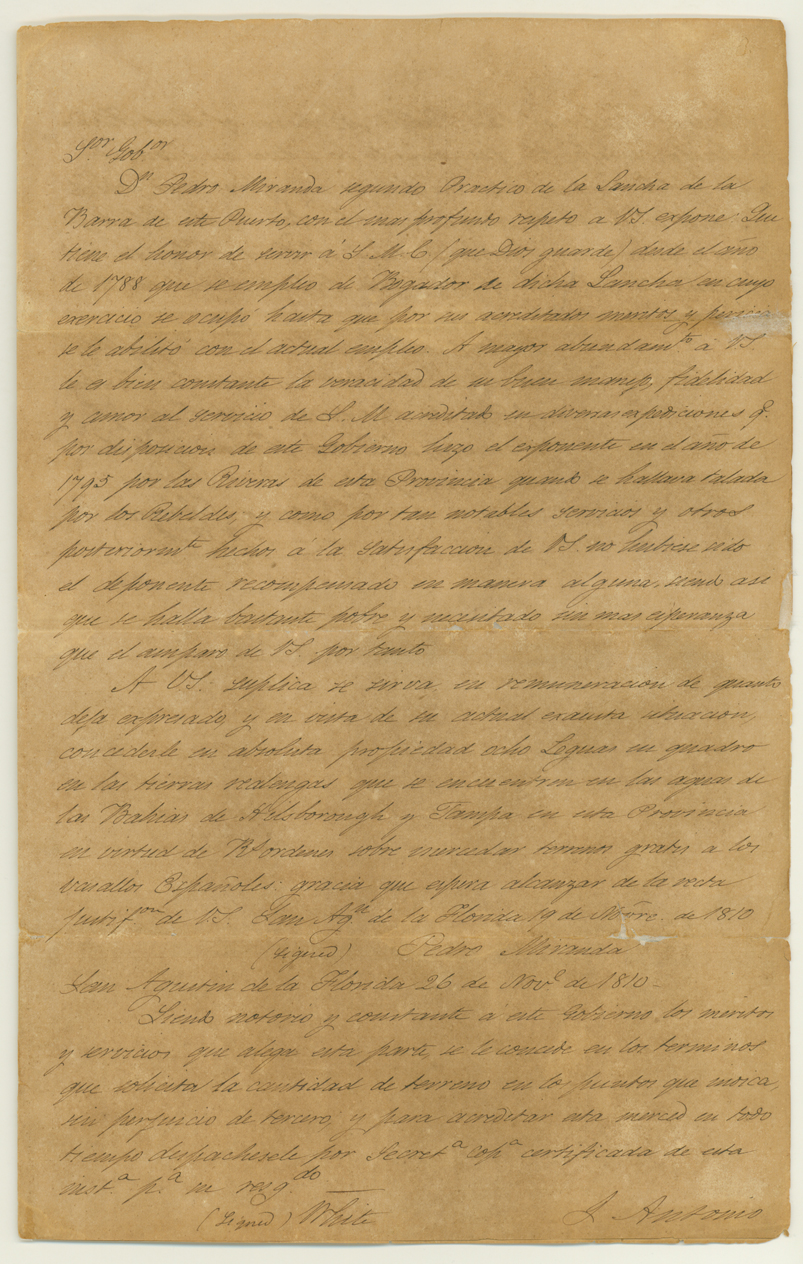 S.or Gob.or
D.n Pedro Miranda segundo Practico de la Lancha de la
Barra de este Puerto, con el mas profundo respeto a VS. expone: Que
tiene el honor de servir á S. M. C. (que Dios guarde) desde el año
de 1788 que se empleo de Bogador de dicha Lancha, en cuyo
exercicio se ocupó hasta que por sus acreditados meritos y pericia
se le abilitó con el actual empleo. A mayor abundam.to a VS
le es bien constante la veracidad de su buen manejo, fidelidad
y amor al servicio de S. M. acreditado en diversas expediciones q.
por disposicion de este Gobierno hizo el exponente en el año de
1795 por las Riveras de esta Provincia quando se hallava talada
por los Rebeldes, y como por tan notables servicios y otros
posteriorm.te hechos á la satisfaccion de VS. no hubiese sido
el deponente recompensado en manera alguna, siendo asi
que se halla bastante pobre y necesitado sin mas esperanza
que el amparo de VS. por tanto
A VS. suplica se sirva en remuneracion de quanto
deja expresado, y en vista de su actual exausta situacion,
concederle en absoluta propiedad ocho Leguas en quadro
en las tierras realengas que se encuentren en las aguas de
las Bahias de Hilsborough y Tampa en esta Provincia
en virtud de R.s ordenes sobre mercedar terrenos gratis a los
vasallos Españoles: gracia que espera alcanzar de la recta
justif.on de VS. San Ag.n de la Florida 19 de Nõvre. de 1810
(signed) Pedro Miranda
San Agustin de la Florida 26 de Nov.e de 1810.
Siendo notorio y constante a este Gobierno los meritos
y servicios que alega esta parte, se le concede en los terminos
que solicita la cantidad de terreno en los puntos que indica,
sin perjuicio de tercero; y para acreditar esta merced en todo
tiempo despachesele por Secret.a cop.a certificada de esta
inst.a p.a su resg.do
(signed) White J. Antonio